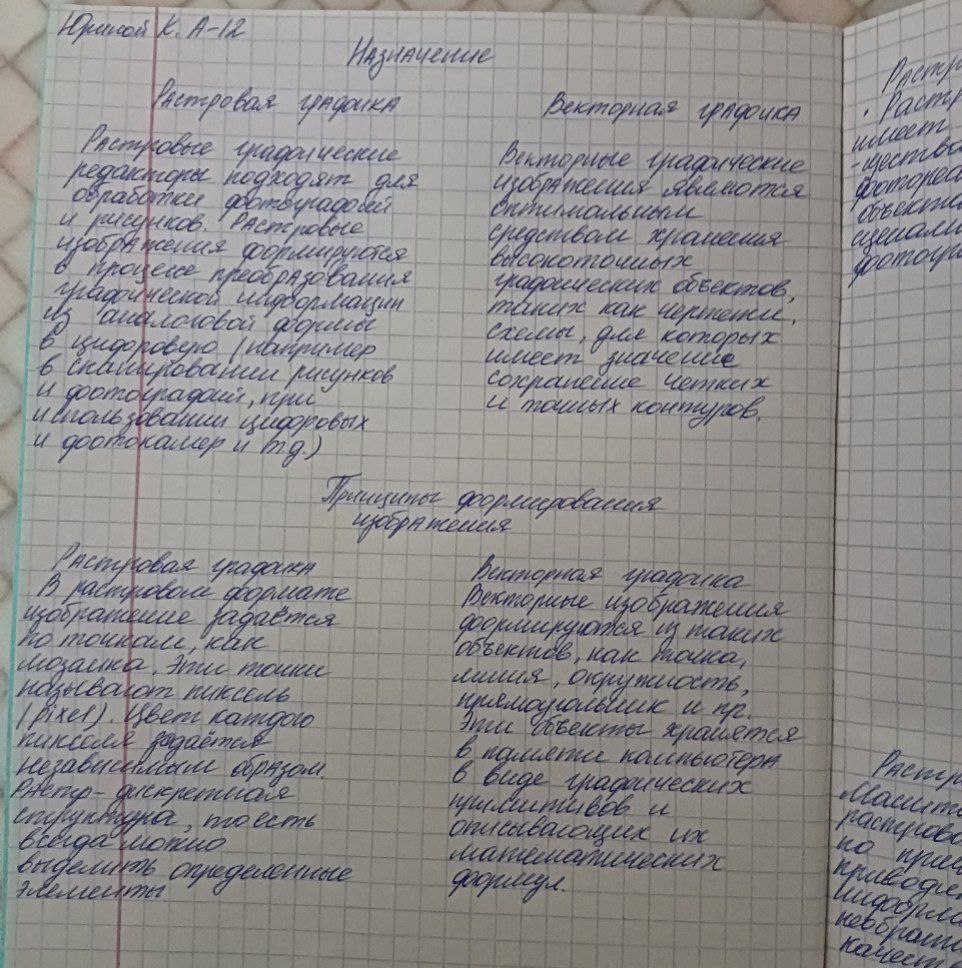 Юриной К. А-12
Назначение
Растровая графика
Растровые графические
редакторы подходят для
обработки фотографий
и рисунков. Растровые
изображения формируются
в процессе преобразования
графической информации
из аналоговой формы
в цифровую (например
в сканировании рисунков
и фотографий, при
использовании цифровых
и фотокамер и т.д.)
Векторная графика
Векторные графические
изображения являются
оптимальным
средством хранения
высокоточных
графических объектов,
таких как чертежи,
схемы, для которых
имеет значение
сохранение четких
и точных контуров.
Принципы формирования
изображения
Растровая графика
В растровом формате
изображение задаётся
по точкам, как
мозаика. Эти точки
называют пиксель
(pixel). Цвет каждого
пикселя задаётся
независимым образом.
Растр - дискретная
структура, то есть
всегда можно
выделить определенные
элементы
Векторная графика
Векторные изображения
формируются из таких
объектов, как точка,
линия, окружность,
прямоугольник и пр.
Эти объекты хранятся
в памяти компьютера
в виде графических
примитивов и
описывающих их
математических
формул.
Растр
. Растр
имеет
-ществ
фотореа
объекти
фотогра
Растр
Масшт
растрово
по при
приводи
информа
необрати
качест